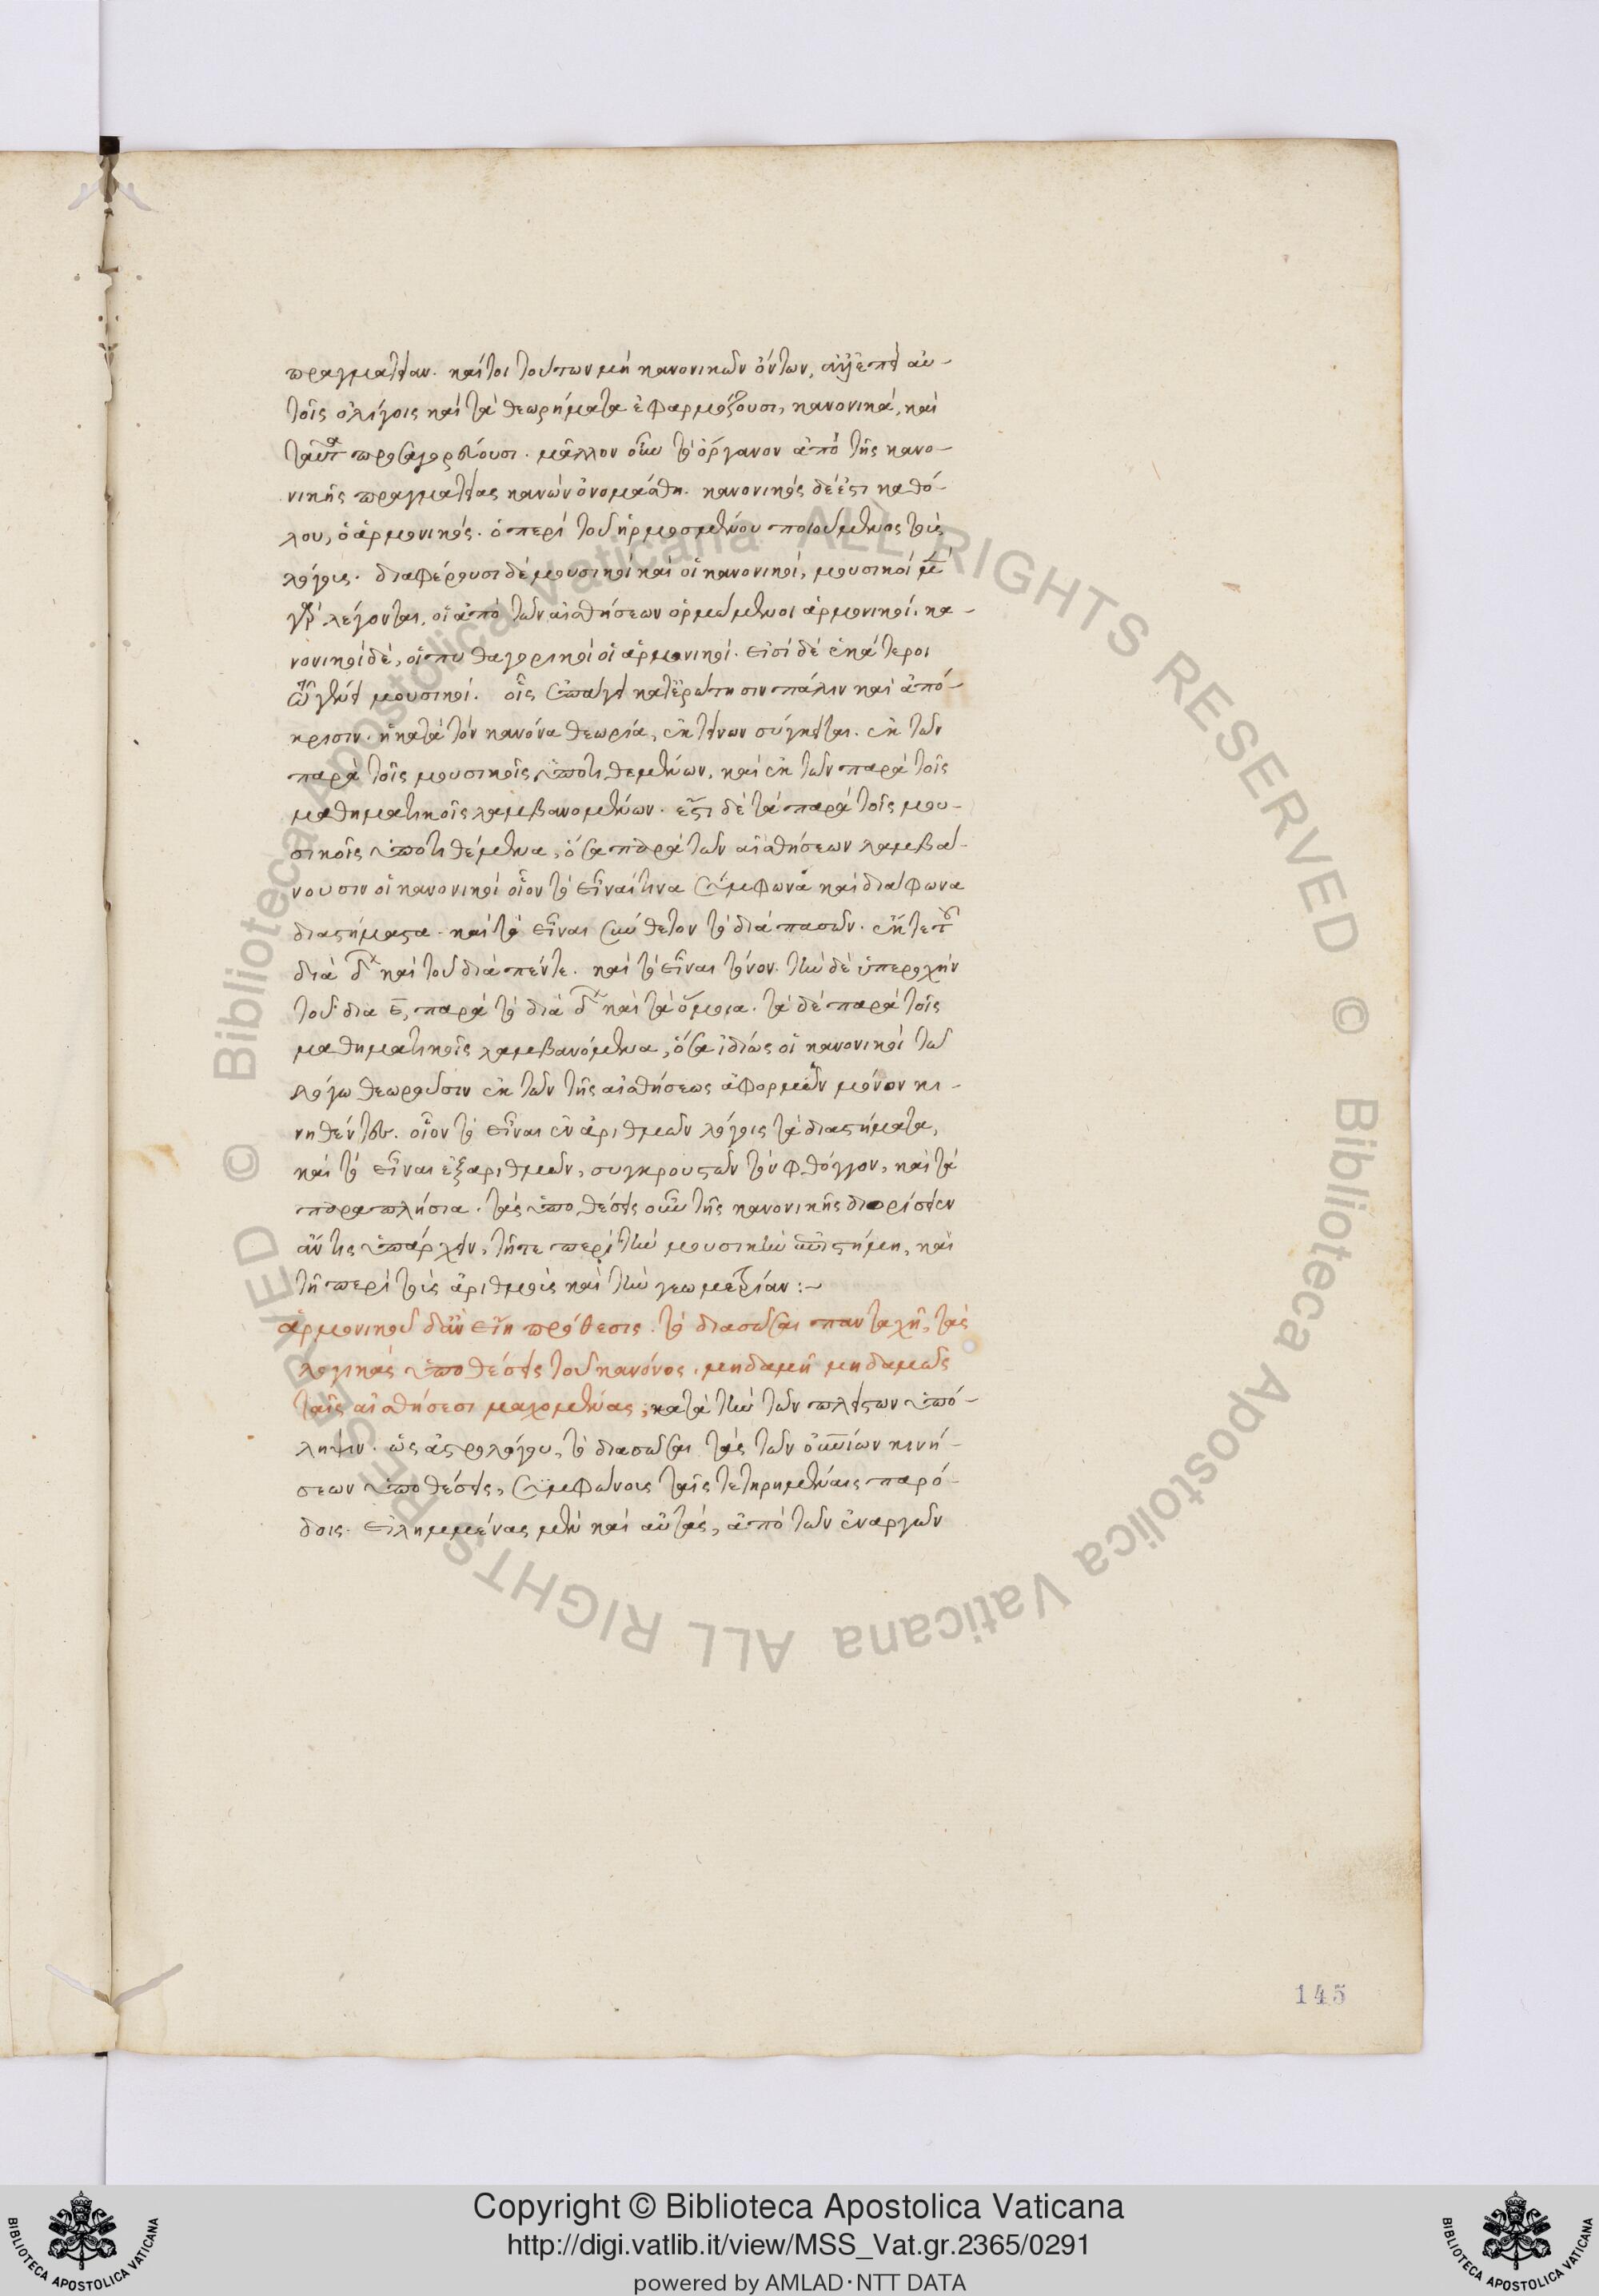 πραγματείαν. καίτοι τούτων μὴ κανονικῶν ὄντων, ἀλλ' ἐπεὶ αὐ-
τοῖς ὀλίγοις καὶ τὰ θεωρήματα ἐφαρμόζουσι, κανονικά, καὶ
ταῦτα προσαγορεύουσι. μᾶλλον οὖν τὸ ὄργανον ἀπὸ τῆς κανο-
νικῆς πραγματείας κανὼν ὀνομάσθη. κανονικὸς δέ ἐστι καθό-
λου, ὁ ἁρμονικός. ὁ περὶ τοῦ ἡρμοσμένου ποιούμενος τοὺς
λόγους. διαφέρουσι δὲ μουσικοὶ καὶ οἱ κανονικοί, μουσικοὶ μὲν
γὰρ λέγονται, οἱ ἀπὸ τῶν αἰσθήσεων ὁρμώμενοι ἁρμονικοί. κα-
νονικοὶ δὲ, οἱ πυθαγορικοὶ οἱ ἁρμονικοί. εἰσὶ δὲ ἑκάτεροι
τῷ γένει μουσικοί. οἷς ἐπάγει κατ' ἐρώτησιν πάλιν καὶ ἀπό-
κρισιν. ἡ κατὰ τὸν κανόνα θεωρία, ἐκ τίνων σύγκειται. ἐκ τῶν
παρὰ τοῖς μουσικοῖς ὑποτιθεμένων, καὶ ἐκ τῶν παρὰ τοῖς
μαθηματικοῖς λαμβανομένων. ἔστι δὲ τὰ παρὰ τοῖς μου-
σικοῖς ὑποτιθέμενα, ὅσα παρὰ τῶν αἰσθήσεων λαμβά-
νουσιν οἱ κανονικοὶ οἷον τὸ εἶναί τινα σύμφωνα καὶ διάφωνα
διαστήματα. καὶ τὸ εἶναι σύνθετον τὸ διὰ πασῶν. ἔκ τε τοῦ
διὰ δʹ καὶ τοῦ διὰ πέντε. καὶ τὸ εἶναι τόνον. τὴν δὲ ὑπεροχὴν
τοῦ δια ε̅, παρὰ τὸ διὰ δʹ καὶ τὰ ὅμοια. τὰ δὲ παρὰ τοῖς
μαθηματικοῖς λαμβανόμενα, ὅσα ἰδίως οἱ κανονικοὶ τῷ
λόγω θεωροῦσιν ἐκ τῶν τῆς αἰσθήσεως ἀφορμῶν μόνον κι-
νηθέντες. οἷον τὸ εἶναι ἐν ἀριθμῶν λόγοις τὰ διαστήματα,
καὶ τὸ εἶναι ἐξ ἀριθμῶν, συγκρουστῶν τὸν φθόγγον, καὶ τὰ
παραπλήσια. τὰς ὑποθέσεις οὖν τῆς κανονικῆς διορίσειεν
ἄν τις ὑπάρχειν, τῆ τε περὶ τὴν μουσικὴν ἐπιστήμη, καὶ
τῆ περὶ τοὺς ἀριθμοὺς καὶ τὴν γεωμετρίαν :~
ἁρμονικοῦ δ' ἂν εἴη πρόθεσις. τὸ διασῶσαι πανταχῆ, τὰς
λογικὰς ὑποθέσεις τοῦ κανόνος. μηδαμῆ μηδαμῶς
ταῖς αἰσθήσεσι μαχομένας, κατὰ τὴν τῶν πλείστων ὑπό-
ληψιν. ὡς ἀστρολόγου, τὸ διασῶσαι τὰς τῶν οὐρανίων κινή-
σεων ὑποθέσεις, συμφώνους ταῖς τετηρημέναις παρό-
δοις. εἰλημμένας μὲν καὶ αὐτὰς, ἀπὸ τῶν ἐναργῶν
145
Bibliotheca Apostolica Vaticana ALL RIGHTS RESERVED ©
Copyright © Biblioteca Apostolica Vaticana
http://digi.vatlib.it/view/MSS_Vat.gr.2365/0291
powered by AMLAD·NTT DATA
BIBLIOTECA APOSTOLICA VATICANA
BIBLIOTECA APOSTOLICA VATICANA